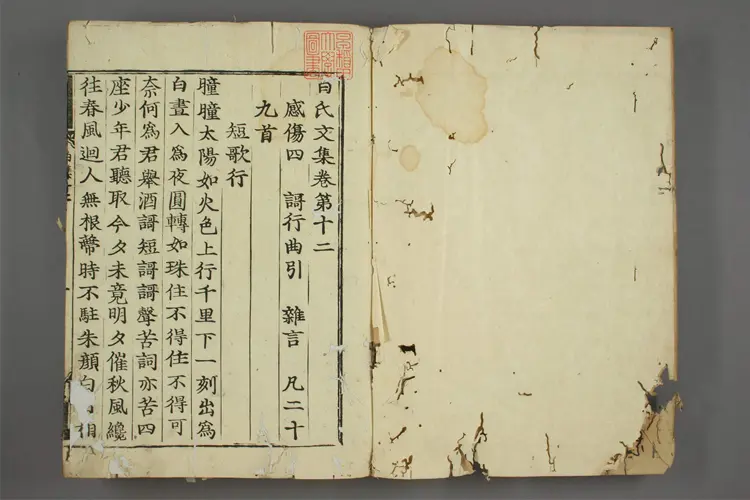 白氏文集卷第十二
感傷四 謌行曲引 雜言 凡二十
九首
短歌行
曈曈太陽如火色上行千里下一刻出為
白晝入為夜圓轉如珠住不得住不得可
奈何為君舉酒謌短謌謌聲苦詞亦苦四
座少年君聽取今夕未竟明夕催秋風纔
往春風迴人無根蔕時不駐朱顏白 相